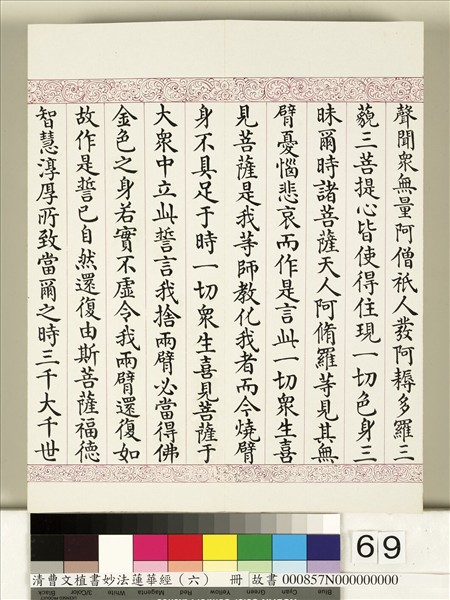 聲聞眾無量阿僧祇人發阿耨多羅三
藐三菩提心皆使得住現一切色身三
昧爾時諸菩薩天人阿脩羅等見其無
臂憂惱悲哀而作是言此一切眾生喜
見菩薩是我等師教化我者而今燒臂
身不具足于時一切眾生喜見菩薩于
大眾中立此誓言我捨兩臂必當得佛
金色之身若實不虛令我兩臂還復如
故作是誓已自然還復由斯菩薩福德
智慧淳厚所致當爾之時三千大千世
69
Black
3/Color
White
Magenta
Red
Yellow
Green
Cyan
Blue
清曹文植書妙法蓮華經（六） 冊 故書 000857N000000000